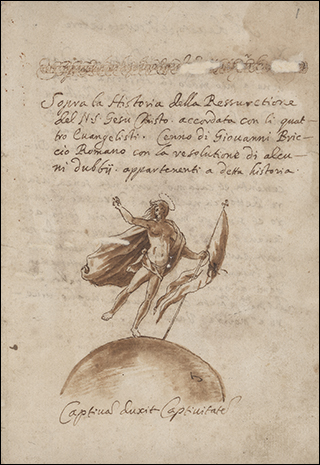 Sopra la Historia della Ressuretione
del N.S. Giesu Christo. accordata con li quat=
tro Euangelisti. Cenno di Giouanni Bric=
cio Romano con la resolutione di alcu=
ni dubbij. appartenenti a detta historia.
Captiuā duxit Captiuitatē